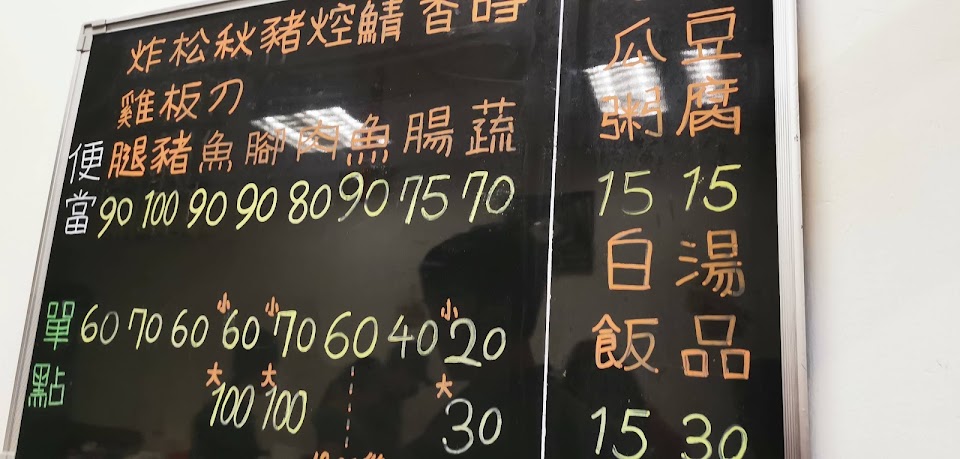 炸松秋豬焢鯖香時
雞板刀
便當 腿豬魚腳肉魚腸蔬
90 100 90 90 80 90 75 70
單點 60 70 60 小60 小70 60 40 小20
大100 大100 大30
瓜粥 豆腐
15 15
白飯 湯品
15 30